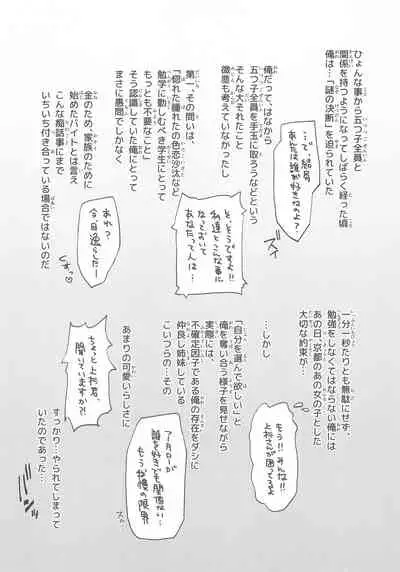 ひょんな事から五つ子全員と
関係を持つようになってしばらく経った頃
俺は…「謎の決断」を迫られていた
…で、結局
あんたは誰が好きなのよ?
あれ?
今、逸らした―
俺だって、はなから
五つ子全員を手玉に取ろうなどという
そんな大それたこと
微塵も考えていなかったし
と、そうですよ!!
友達とこんな事に
なっておいて
あなたって人は…
第一、その問いは
「惚れた腫れたの色恋沙汰など
勉学に勤しむべき学生にとって
もっとも不要なこと」
そう認識していた俺にとって
まさに愚問でしかなく
金のため、家族のために
始めたバイトとは言え
こんな痴話事にまで
いちいち付き合っている場合ではないのだ
一分一秒たりとも無駄にせず、
勉強をしなくてはならない俺には
あの日、京都のあの女の子とした
大切な約束が…
もう!!みんな!!
上杉さんが困ってるよ
…しかし
「自分を選んで欲しい」と
俺を奪い合う様子を見せながら
実際には、
不確定因子である俺の存在をダシに
仲良し姉妹している
こいつらの…その
フータローが
誰を好きでも関係ない…
もう我慢の限界
あまりの可愛いらしさに
ちょっと上杉君、
聞いていますか?!
すっかり…やられてしまって
いたのであった…